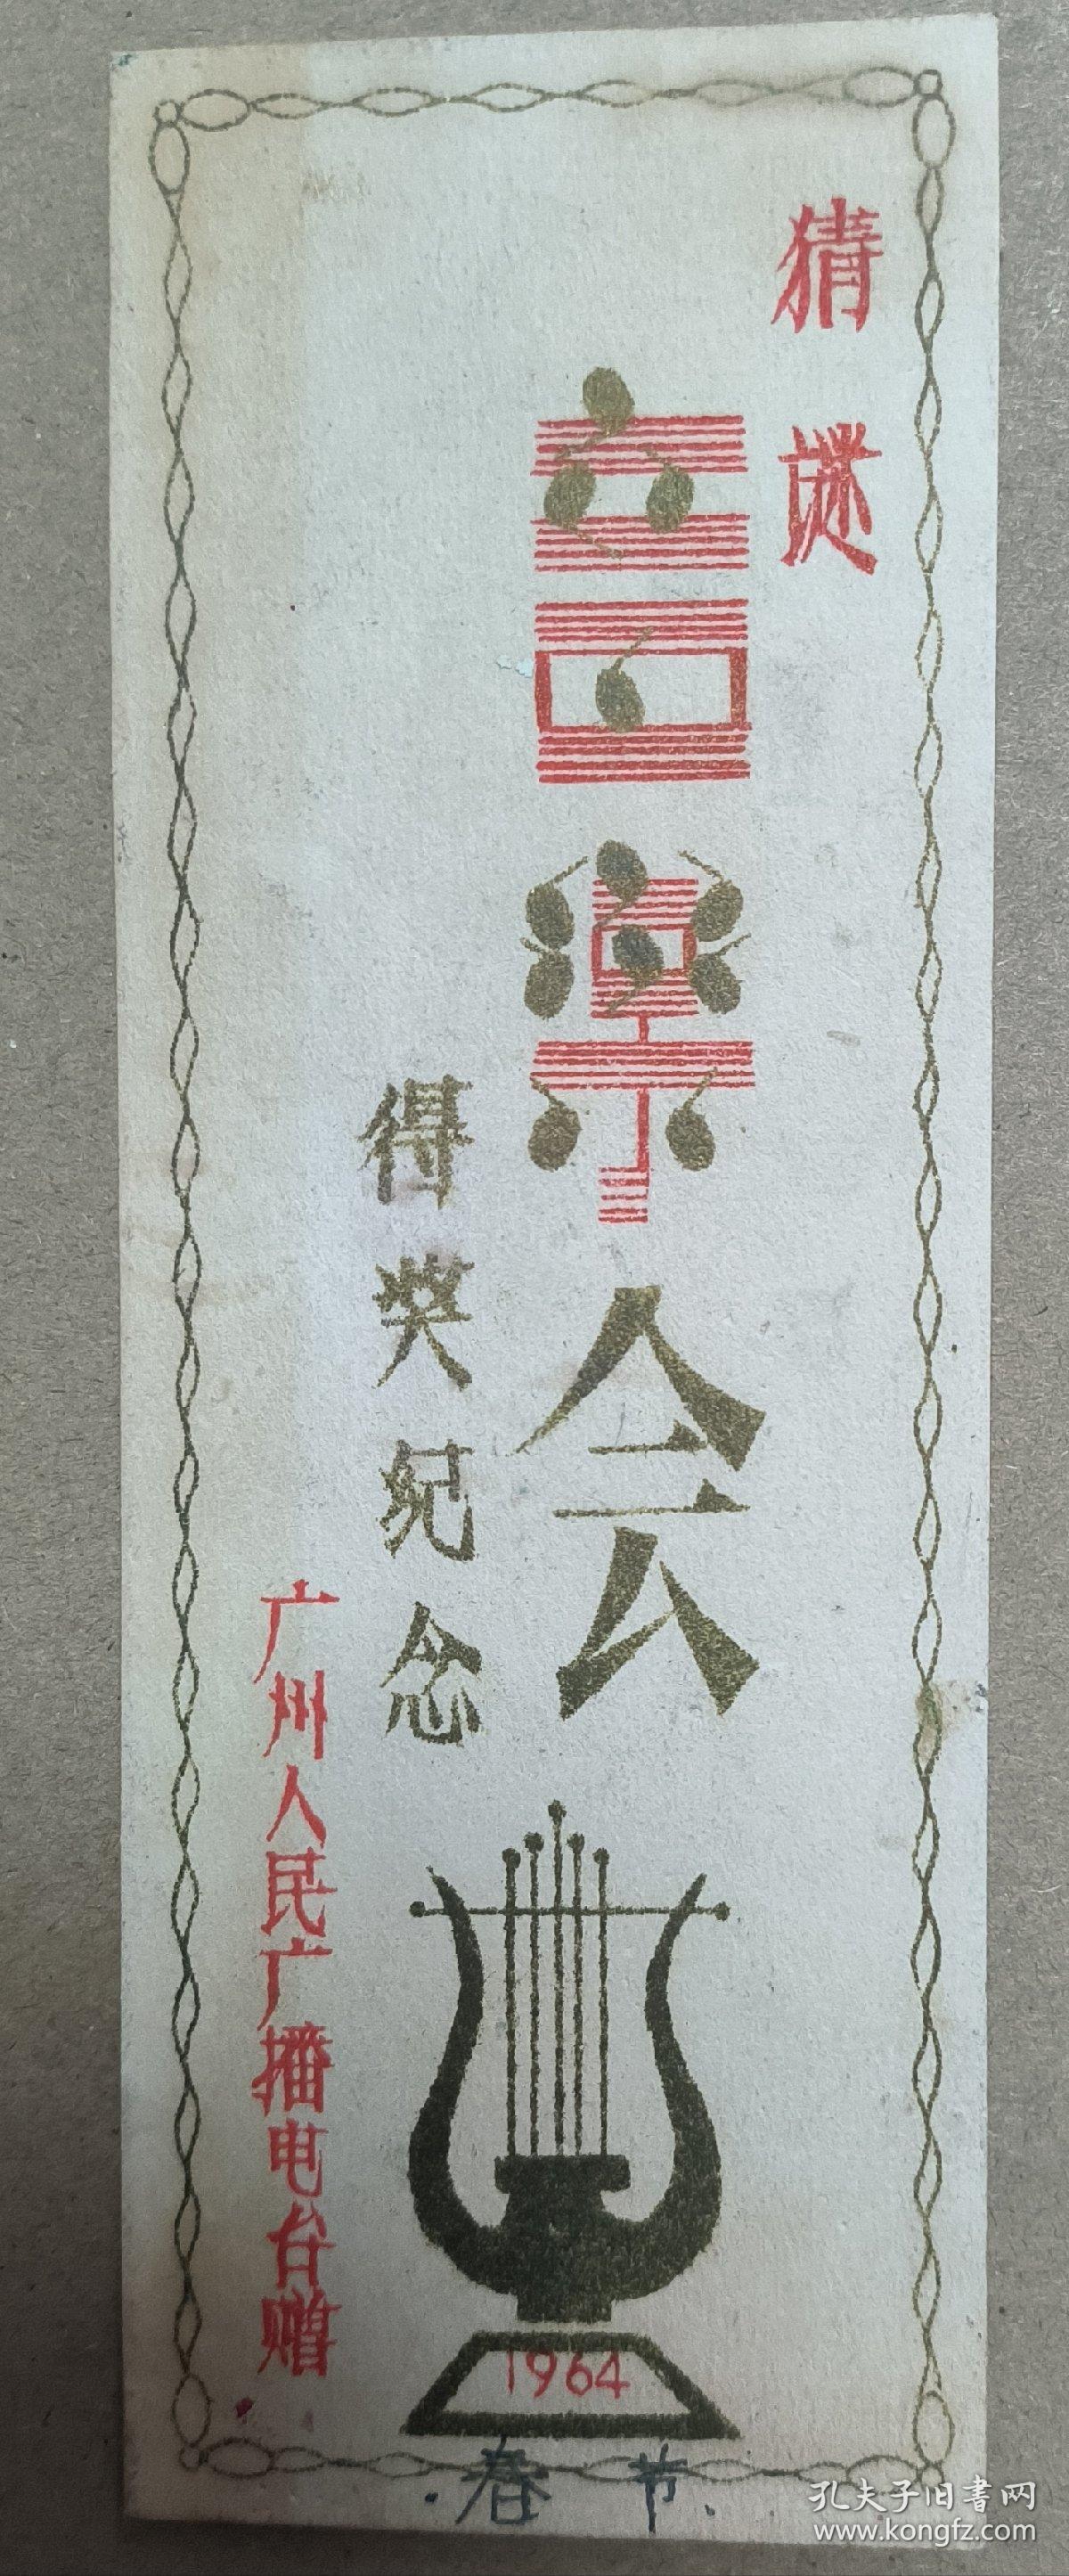 猜谜
音樂会
得奖纪念
广州人民广播电台赠
1964
.春节.
孔夫子旧書网
www.kongfz.com